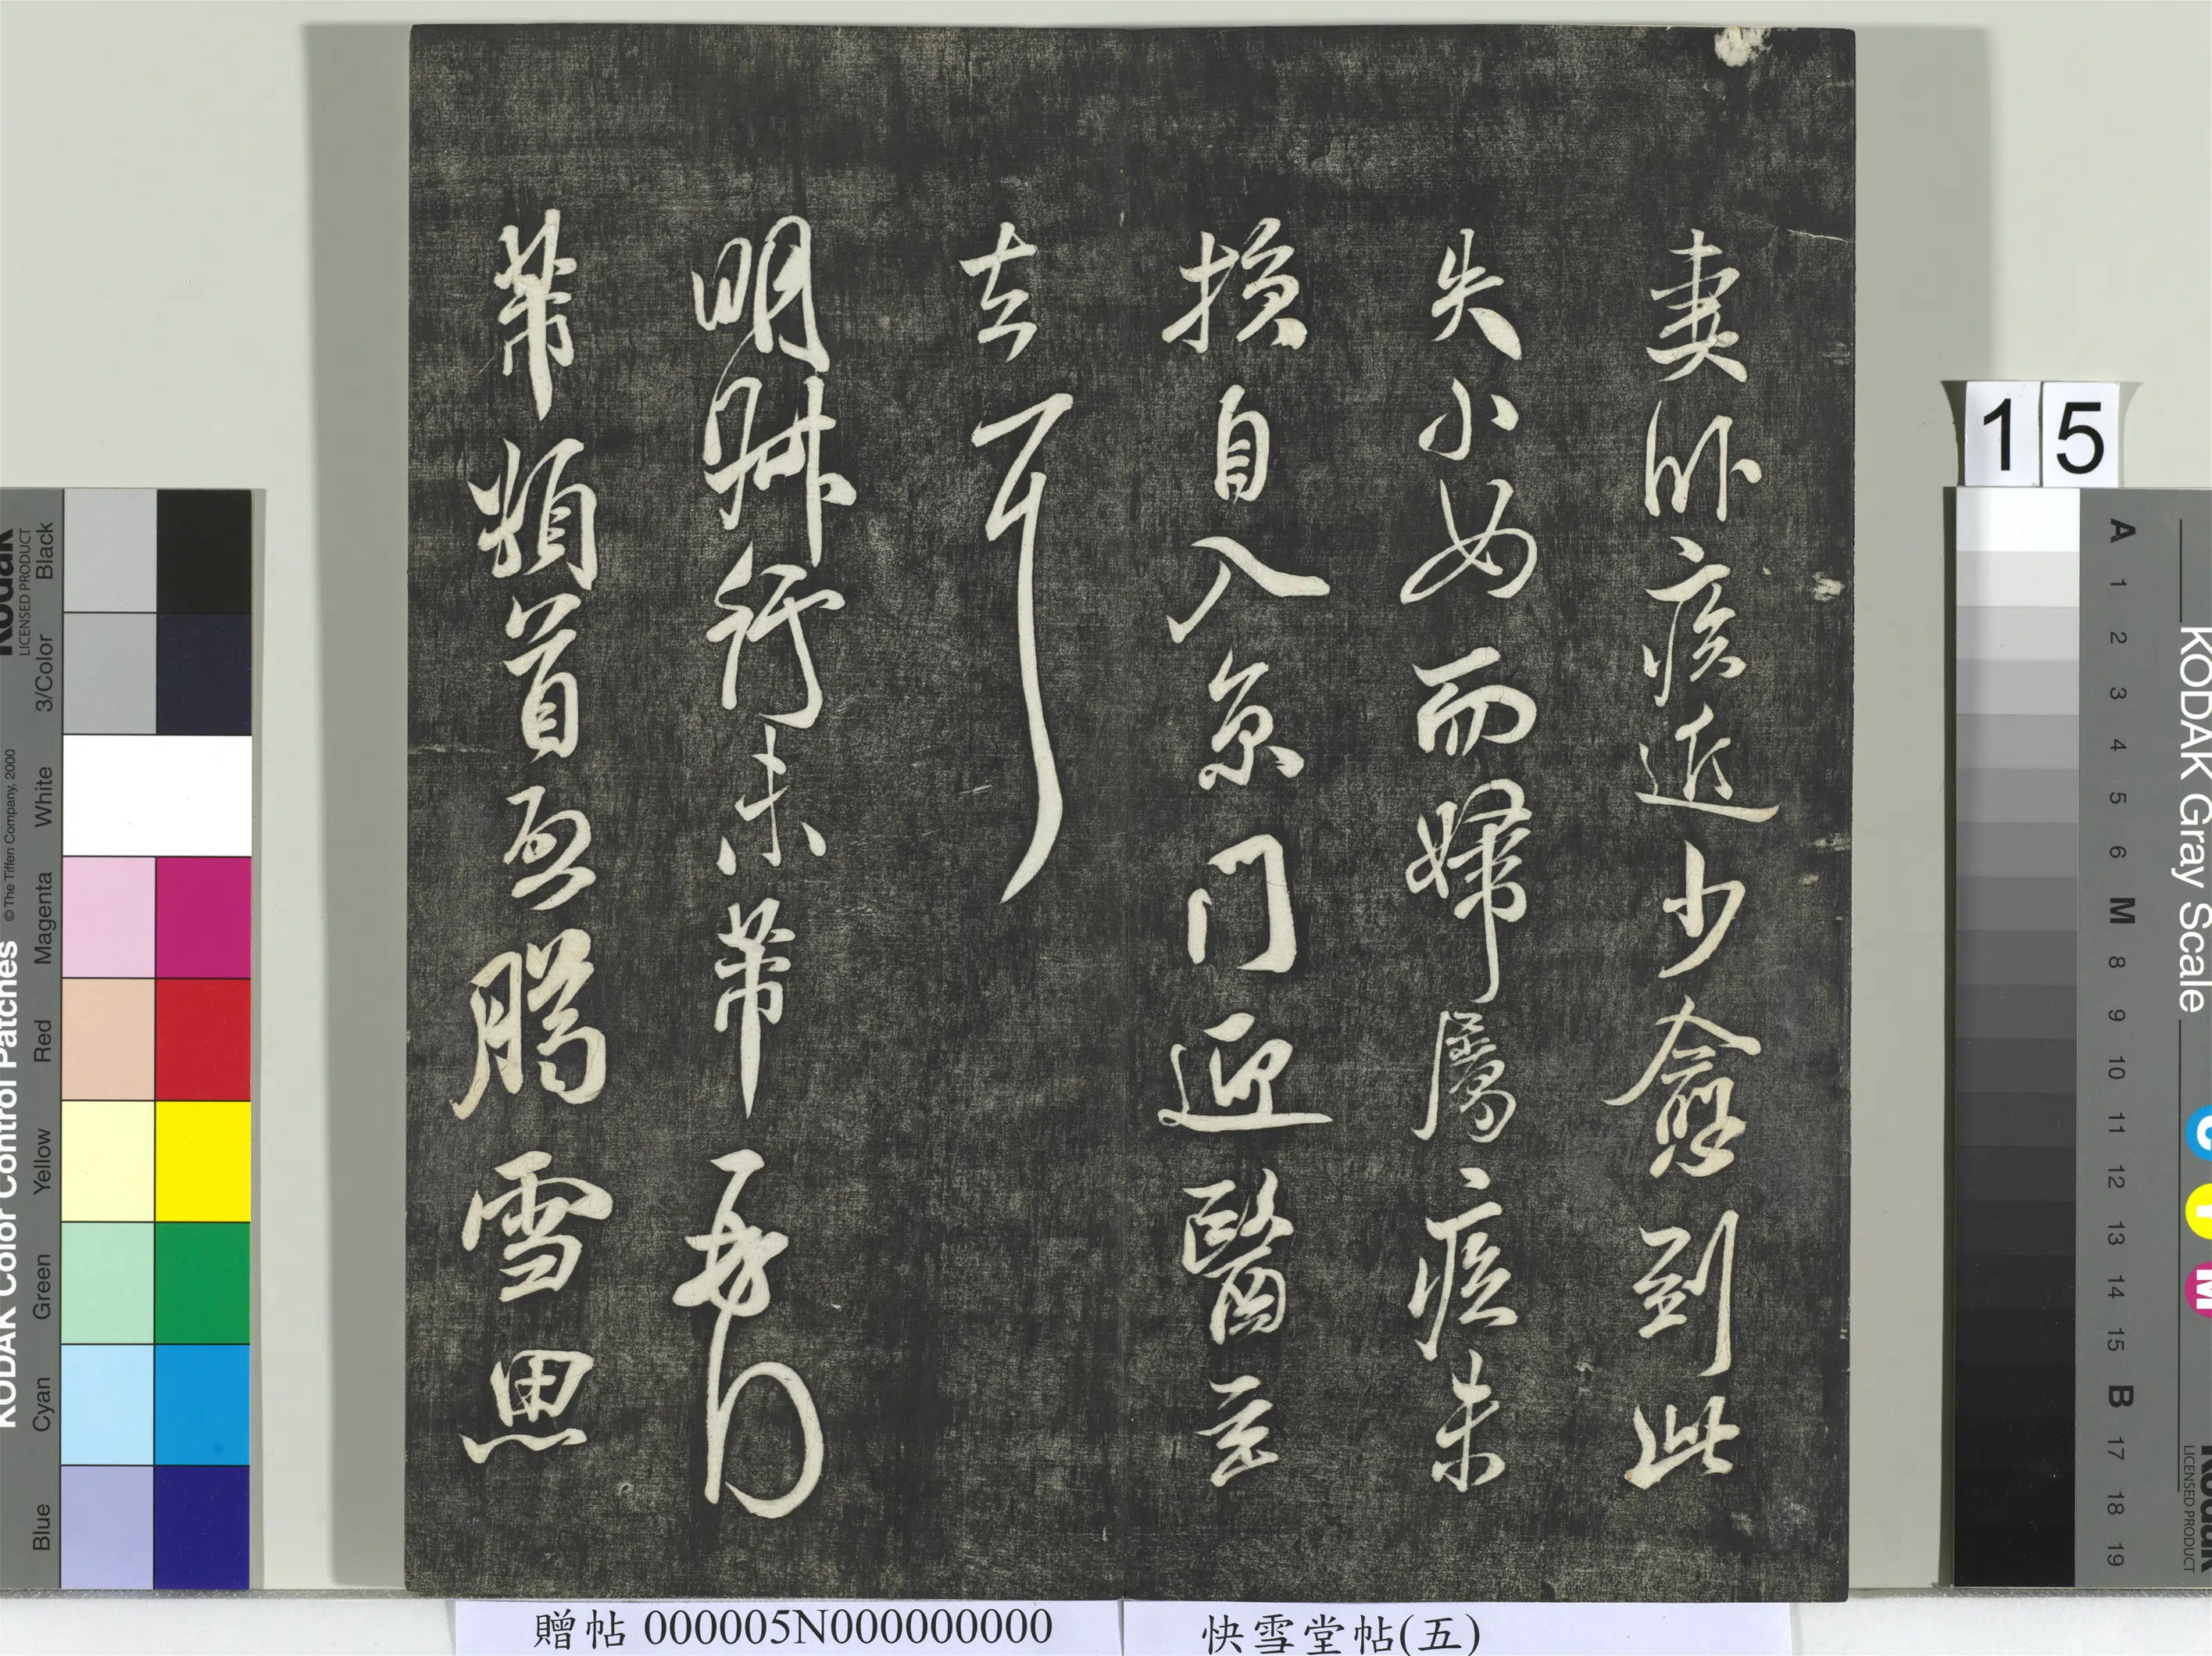 妻卧疾近少愈到此
失小女而婦屬疾未
損自入京門迎醫至
去耳
明行芾再拜
芾頓首啟臘雪思
贈帖 000005N000000000
快雪堂帖(五)
15
KODAK Color Control Patches
© The Tiffen Company, 2000
Kodak
LICENSED PRODUCT
Blue Cyan Green Yellow Red Magenta White 3/Color Black
KODAK Gray Scale
A 1 2 3 4 5 6 M 8 9 10 11 12 13 14 15 B 17 18 19
C Y M
Kodak
LICENSED PRODUCT